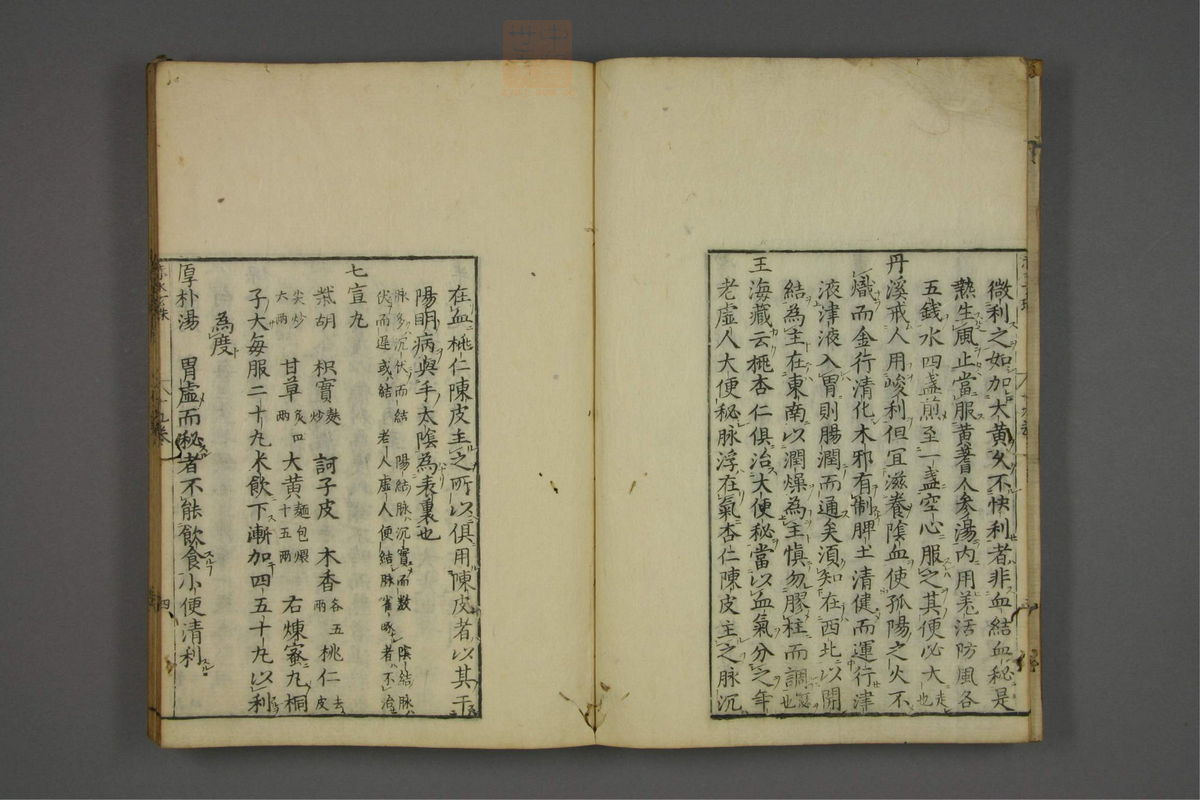 微利之如加大黄久不快利者非血結血秘是
熱生風止當服黄耆人参湯内用羗活防風各
五錢水四盞煎至一盞空心服之其便必大走也
丹溪戒人用峻利但宜滋養陰血使孤陽之火不
熾而金行清化木邪有制脾土清健而運行津
液津液入胃則腸潤而通矣須知在西北以開
結為主在東南以潤燥為主慎勿膠柱而調瑟也
王海藏云桃杏仁俱治大便秘當以血氣分之年
老虚人大便秘脉浮在氣杏仁陳皮主之脉沉
在血桃仁陳皮主之所以俱用陳皮者以其手
陽明病與手太陰為表裏也
脉多沉伏而結 陽結脉沉實而数 陰結脉
伏而遅或結 老人虚人便結脉雀啄者不治
七宣丸
柴胡 枳實麩炒 訶子皮 木香各五兩 桃仁去皮
尖炒六兩 甘草炙四兩 大黄麺包煨十五兩 右煉蜜丸桐
子大毎服二十丸米飲下漸加四五十丸以利
為度
厚朴湯 胃虚而秘者不能飲食小便清利